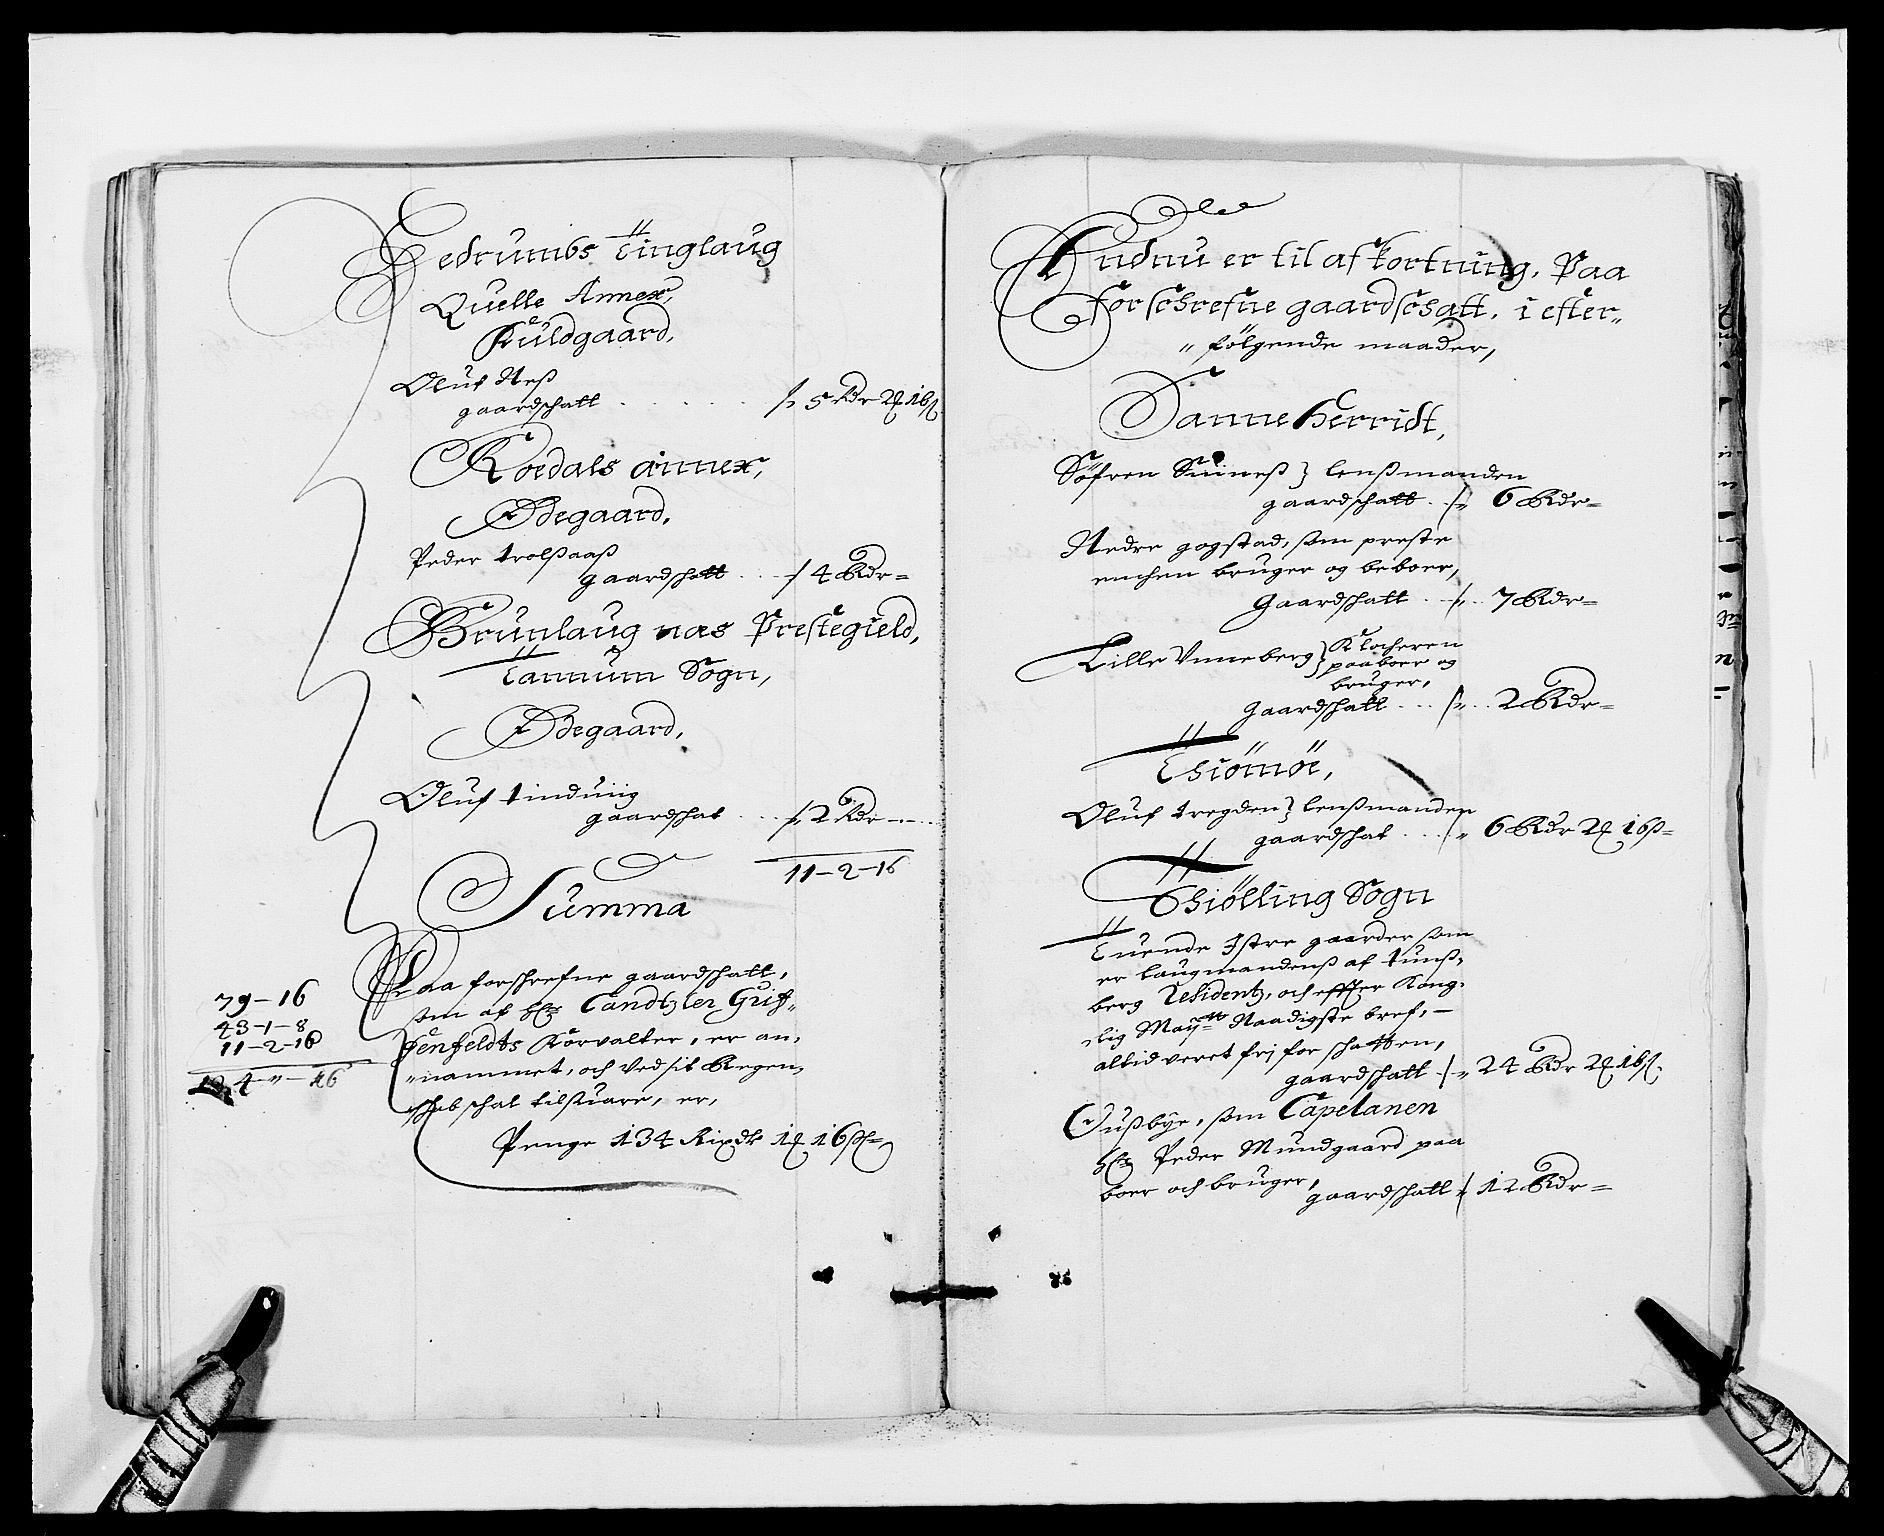 Hedrumbs Tinglaug
Quelle Annex,
Fuldgaard,
Oluf Neß
gaardschatt . . . . . 5 Rdr 2 16 ß
Roedals annex,
Ødegaard,
Peder trolsaaß
gaardschatt . . . 4 Rdr
Brunlaug næs Prestegield,
Tannum Sogn,
Ødegaard,
Oluf tindung
gaardschat . . . 2 Rdr
11-2-16
Summa
79-16
43-1-8
11-2-16
Paa forschrefne gaardschatt,
som af Hr Candtzler Grif-
fenfeldts Forvalter, er an,
nammet, och ved sit Regen,
schab schal tilsuare, er,
Penge 134 Rixdr 1 16 ß
Endnu er til afkortning, Paa
forschrefne gaardschatt, i efter,,
,, følgende maader,
Sanne Herridt,
Søfren } lenßmanden
gaardschatt . . 6 Rdr
Nedre gogstad, som preste
enchen bruger og beboer,
Gaardschatt . . 7 Rdr
Lille Unneberg } Klocheren
paaboer og
bruger,
Gaardschatt . . . 2 Rdr
Thiømøe,
Oluf tregden } lenßmanden
gaardschat . . . 6 Rdr 2 16 ß
Thiølling Sogn
Tuende Istre gaarder som
er laugmandenß af tunß,
berg Residentz, och effter Kong,
elig Maytt Naadigste bref, –
altid veret frj for schatten,
gaardschatt 24 Rdr 2 16 ß
Hußbye, som Capelanen
Hr Peder Mundgaard paa
boer och bruger,
gaardschatt 12 Rdr